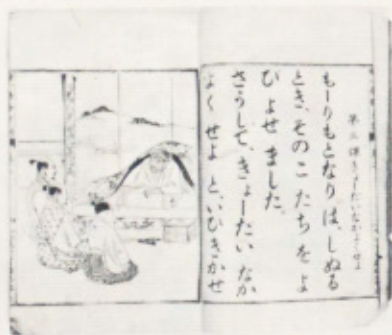 第三課 きょーだいなかよくせよ
もーりもとなりは、しぬる
とき、そのこたちをよ
びよせました。
さうして、きょーだいなか
よくせよと、いひきかせ